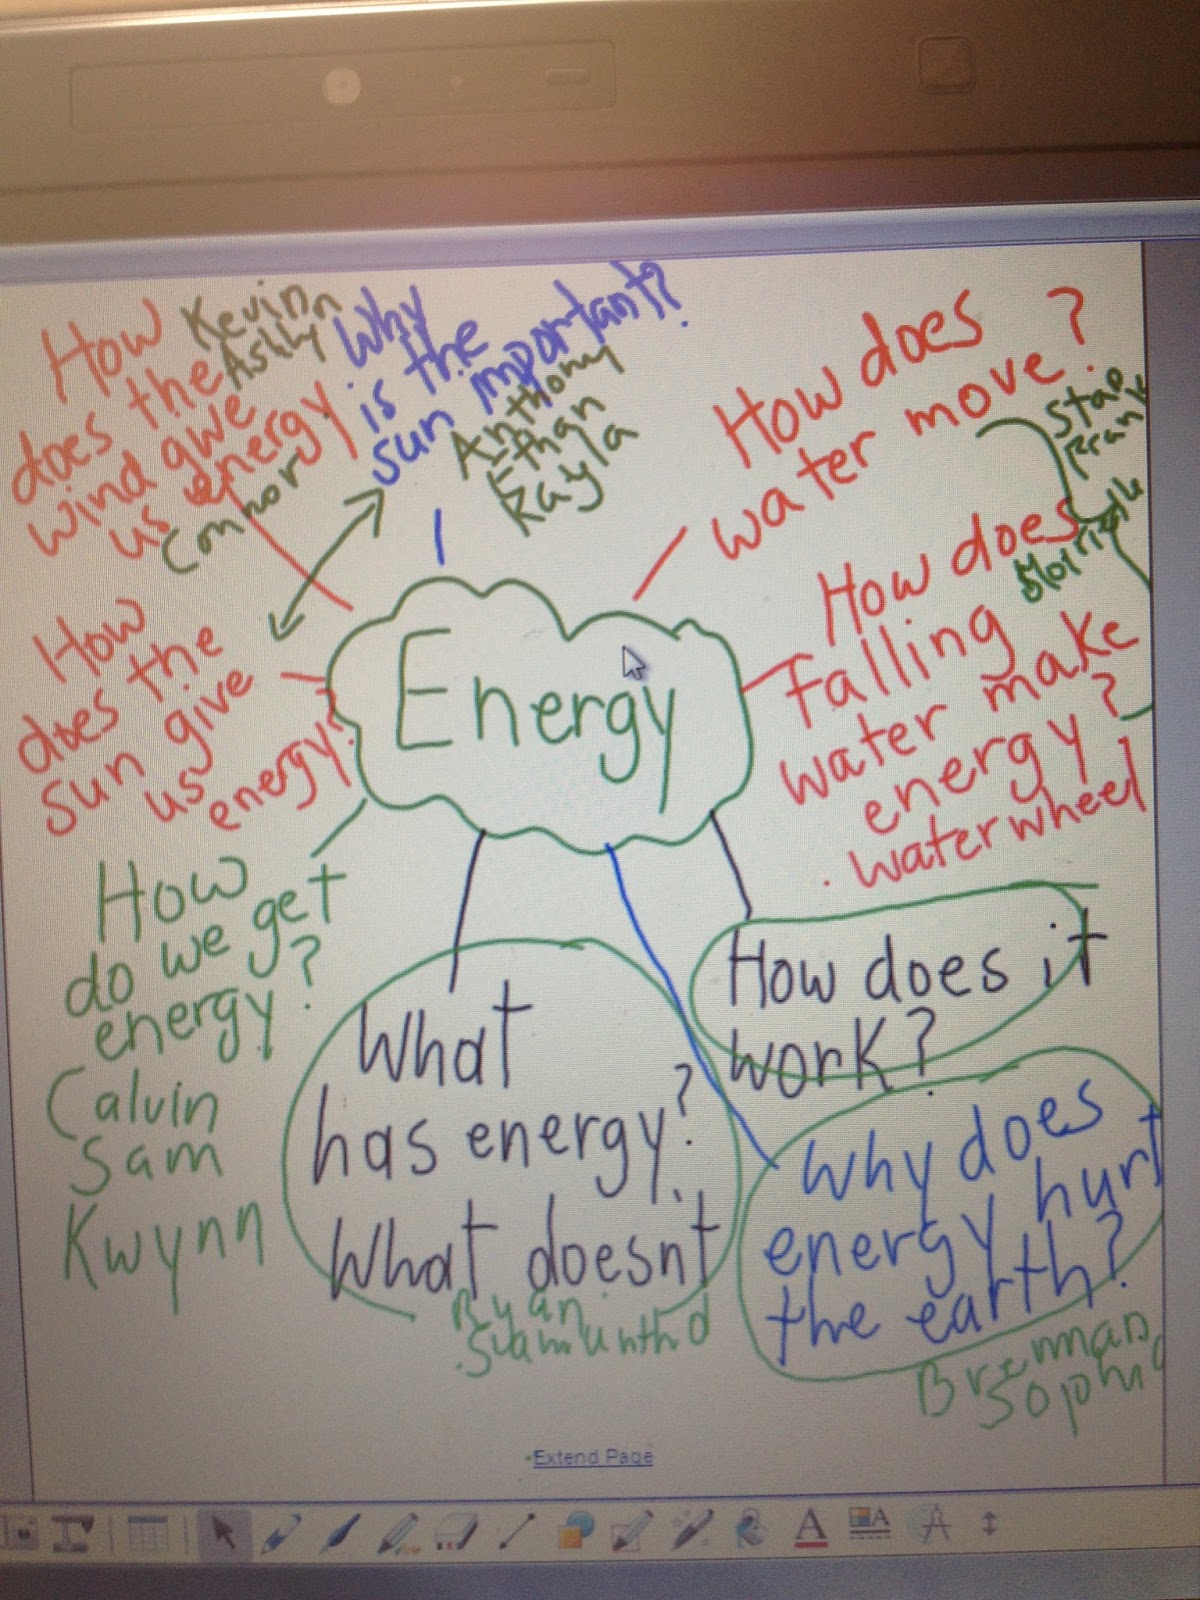 How
does the
wind give
us energy
Kevin
Ashly
Connor
Why
is the
sun important?
Anthony
Ethan
Kayla
How does
water move?
How does
falling
water make
energy?
. waterwheel
How
does the
sun give
us energy?
Energy
How
do we get
energy?
Calvin
Sam
Kwynn
What
has energy?
What doesnt
Ryan
How does it
work?
Why does
energy hurt
the earth?
Brennan
Extend Page